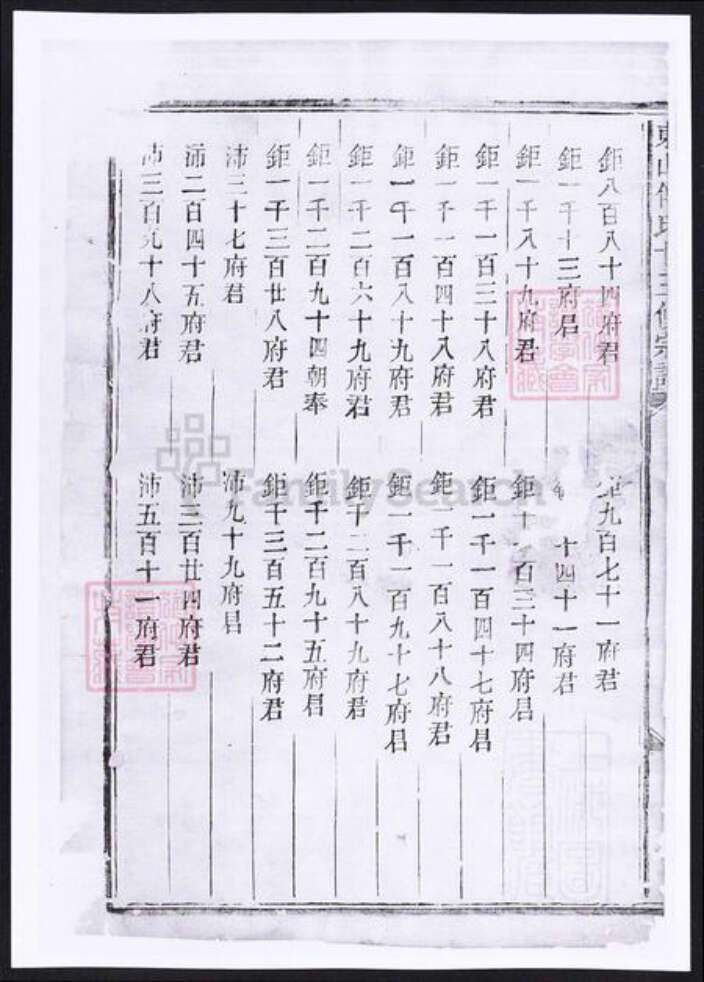 鉅八百八十四府君
九百七十一府君
鉅一千十三府君
十四十一府君
鉅一千八十九府君
鉅十百三十四府君
鉅一千一百三十八府君
鉅一千一百四十七府君
鉅一千一百四十八府君
鉅一千一百八十八府君
鉅一千一百八十九府君
鉅一千一百九十七府君
鉅一千二百六十九府君
鉅千二百八十九府君
鉅一千二百九十四朝奉
鉅千二百九十五府君
鉅一千三百廿八府君
鉅千三百五十二府君
沛三十七府君
沛九十九府君
沛二百四十五府君
沛三百廿四府君
沛三百九十八府君
沛五百十一府君
FamilySearch